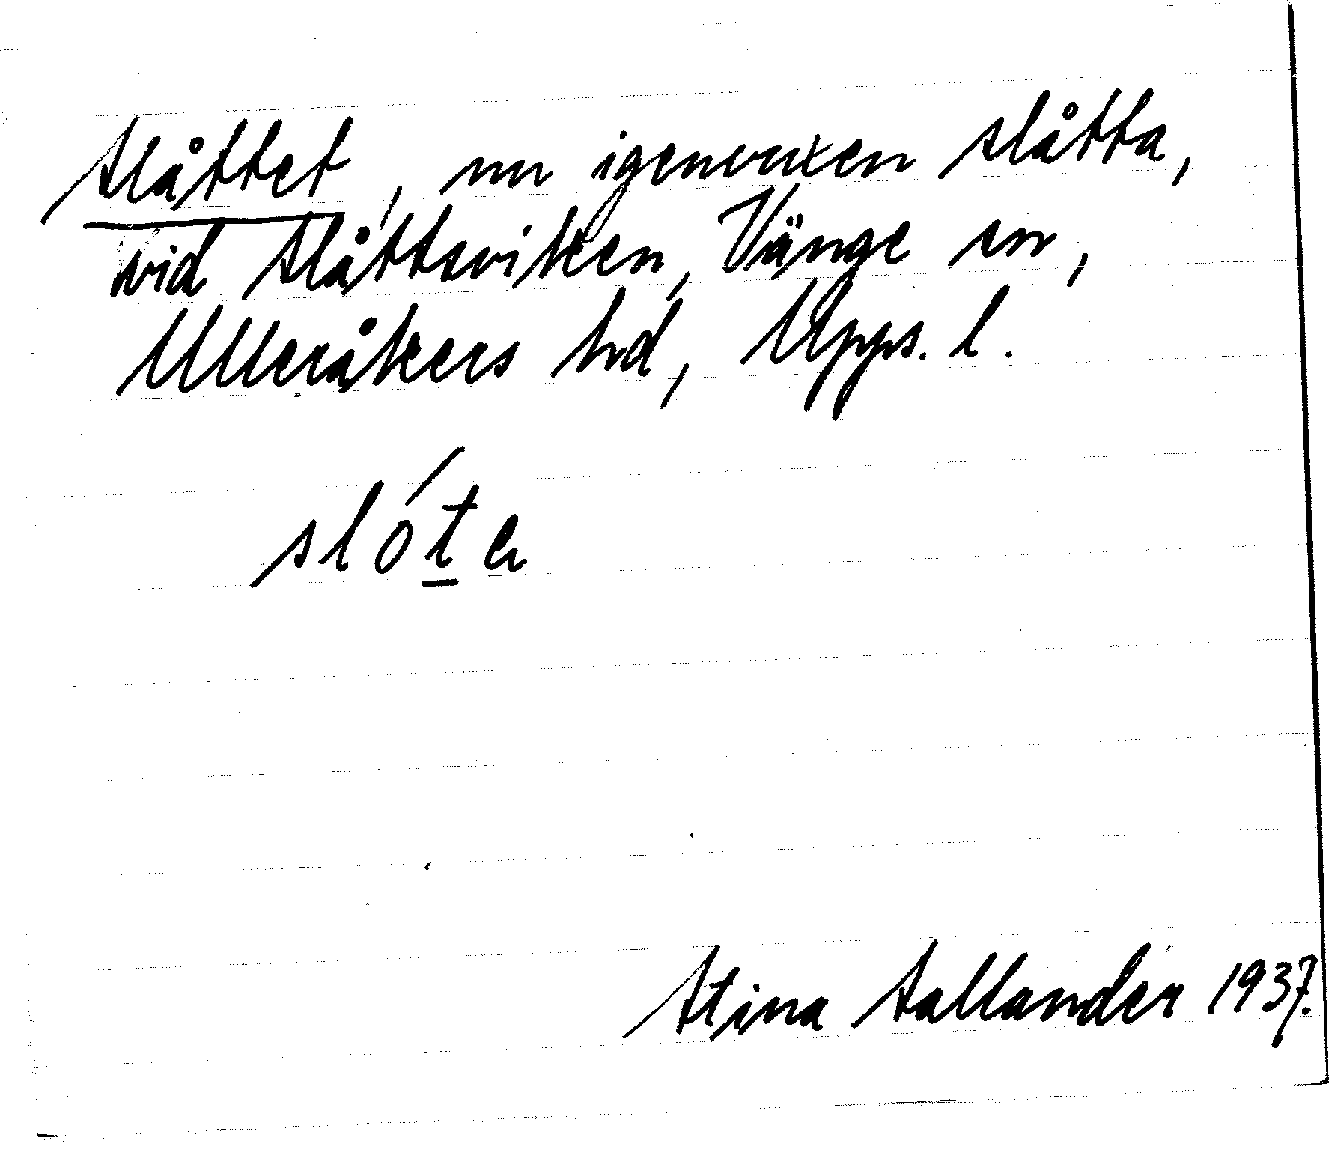 Slåttet, nu igenvuxen slåtta,
vid Slåttsviken, Vänge sn,
Ulleråkers hd, Upps. l.
slóta
Stina Sallander 1937.